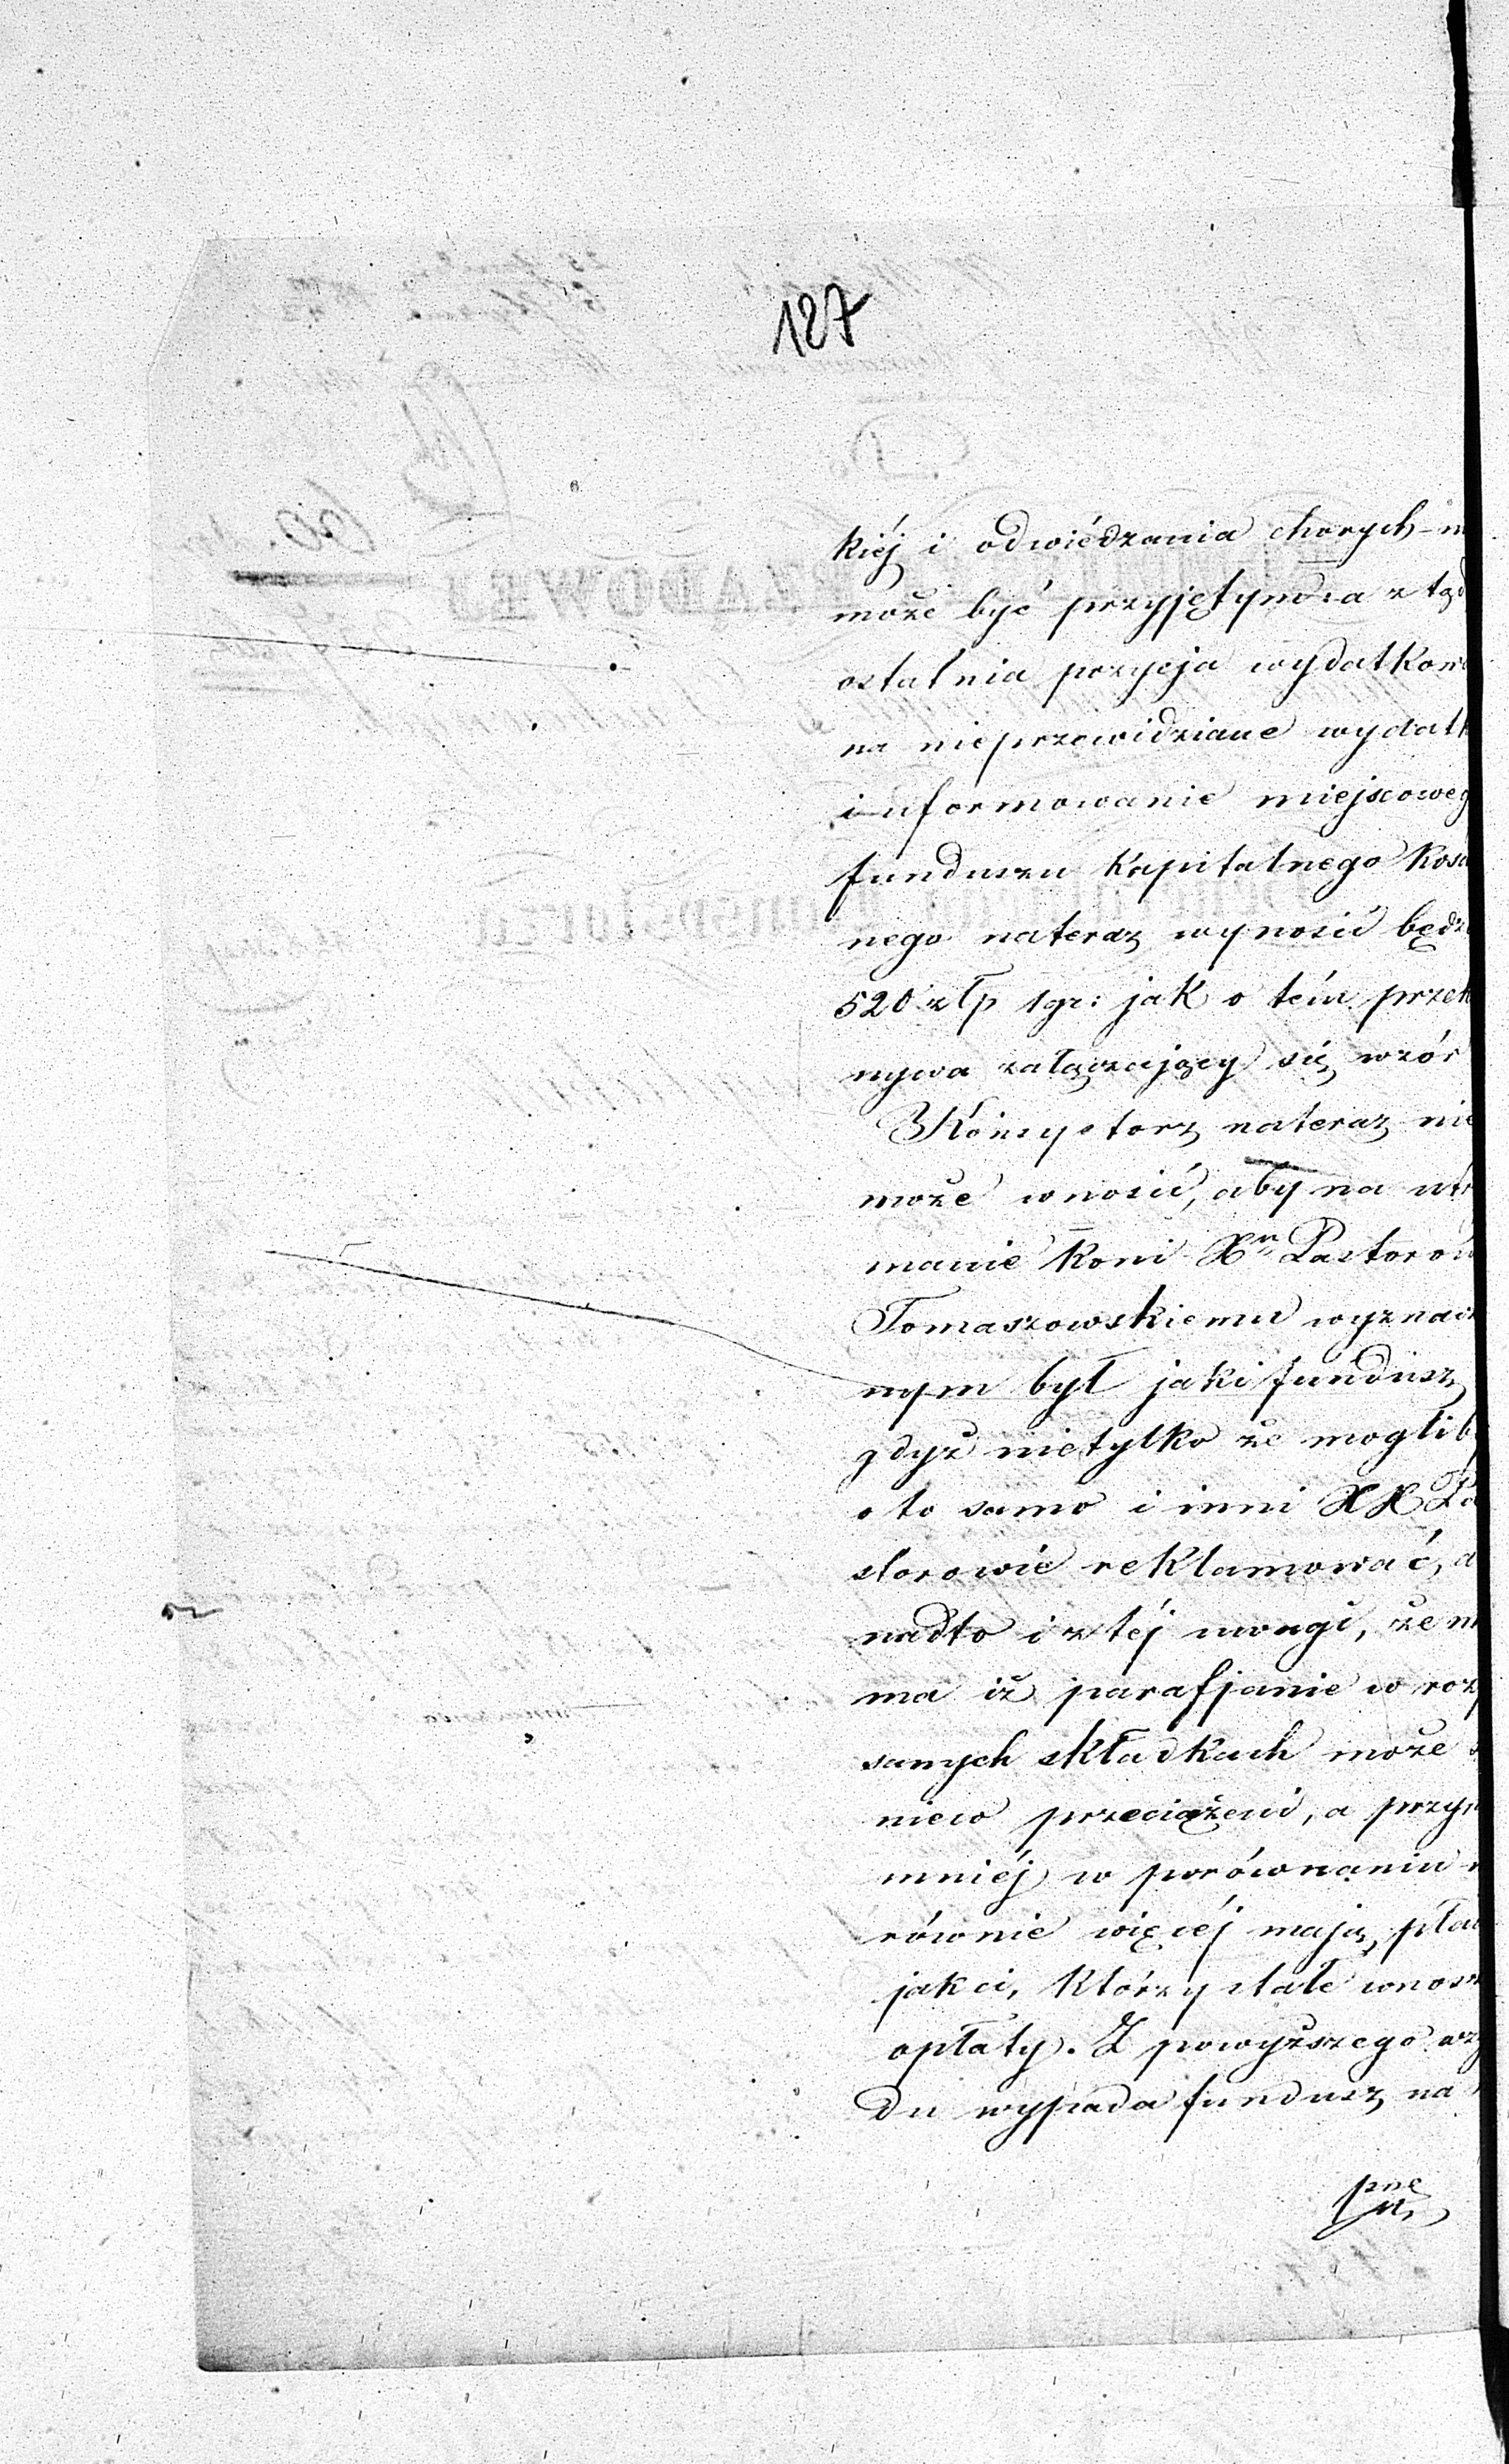 127
kiéj i odwiédzania chorych - n
może być przyjętym, a ztąd
ostatnia pozycja wydatkow
na nieprzewidziane wydatk
i uformowanie miejscoweg
funduszu Kapitalnego Kośc
nego nateraz wynosić będz
520 złp 1 gr: jak o tém przek
nywa załączający się wzór
Konsystorz nateraz nie
może wnosić, aby na utr
manie koni Xu Pastorow
Tomaszowskiemu wyznacz
nym był jaki fundusz
gdyż nietylko że mogliby
o to samo i inni XX Pa
storowie reklamować, a
nadto i z téj uwagi, że m
ma iż parafjanie w roz
sanych składkach może s
nieco przeciążeni, a przyn
mniéj w porównaniu n
równie więcéj mają płac
jak ci, którzy stałe wnosz
opłaty. Z powyższego wzg
du wypada fundusz na